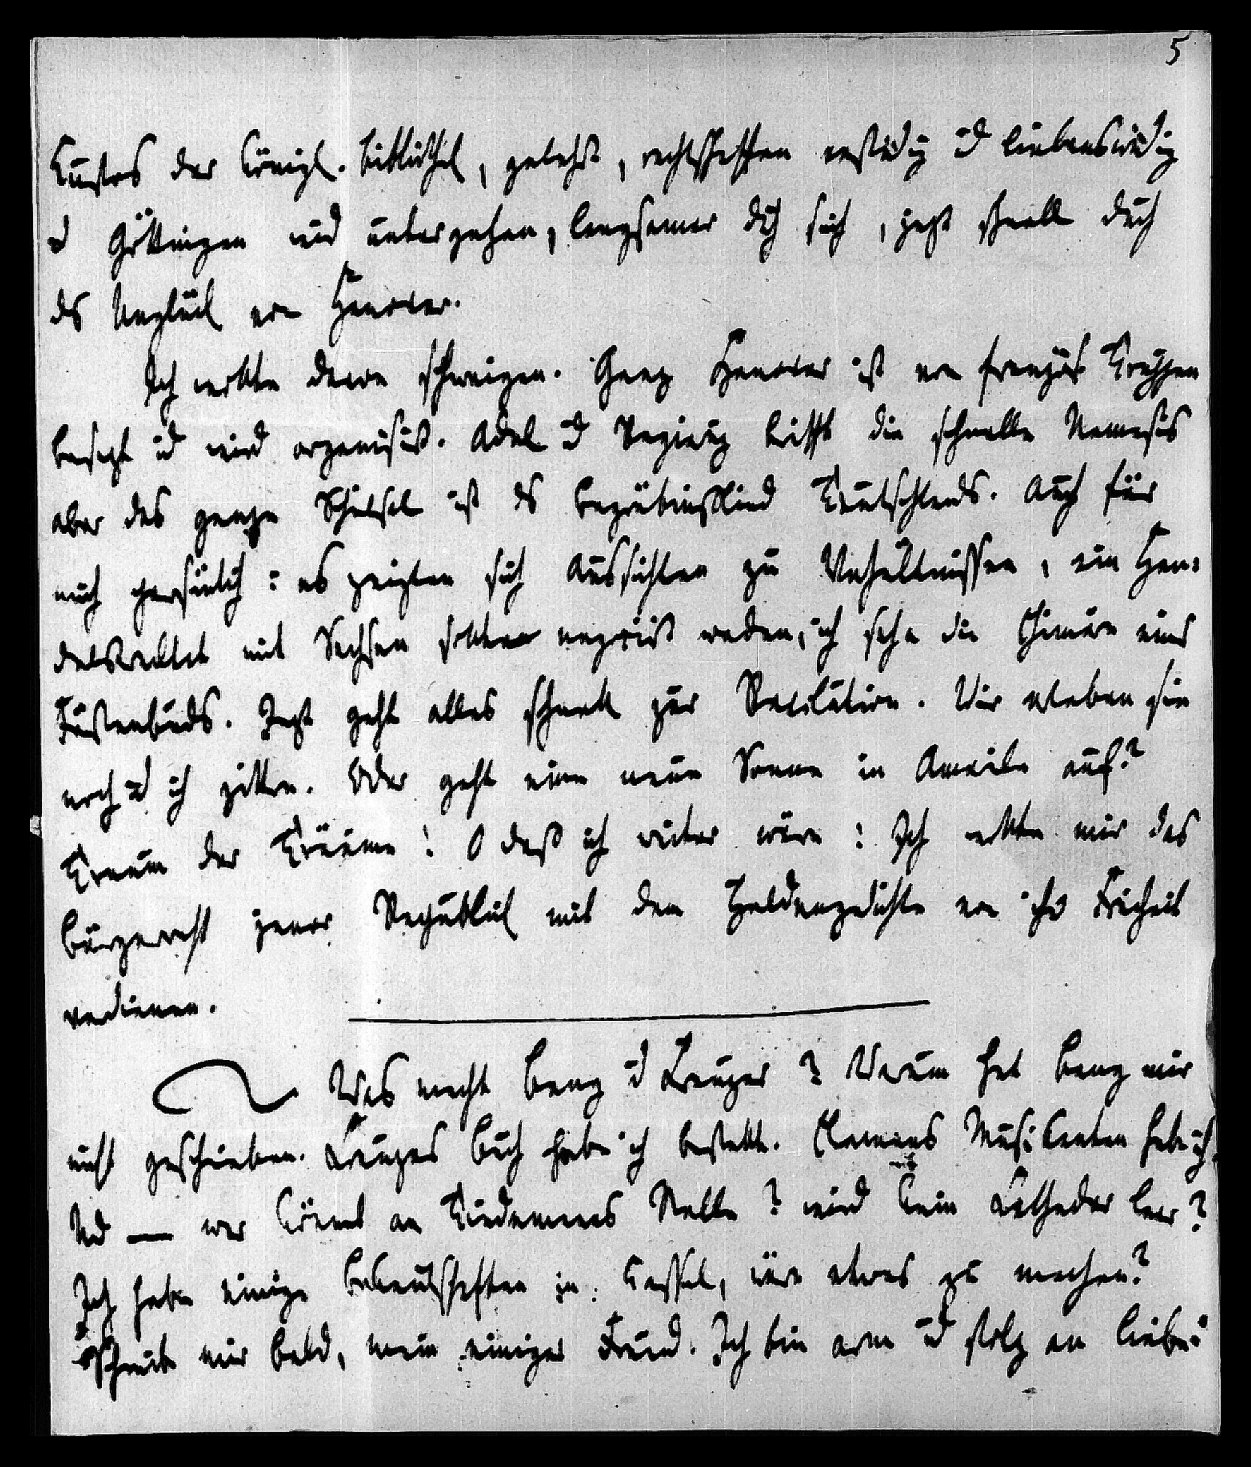 5
Custos der Königl. Bibliothek, gelehrt, rechtschaffen verständig ud liebenswürdig
ud Göttingen wird untergehen, langsamer dch sich, jezt schnell durch
ds Unglück von Hanover.
Ich wollte davon schweigen. Ganz Hanover ist von französ Truppen
besezt ud wird organisirt. Adel ud Regierug trifft die schnelle Nemesis
aber das ganze Schiksal ist ds Begräbnißlied Teutschlands. Auch für
mich persönlich: es zeigten sich Aussichten zu Verhältnissen, ein Han-
delstraktat mit Sachsen sollte negoziirt werden, ich sehe die Chimäre eines
Fürstenbunds. Jezt geht alles schnell zur Revolution. Wir erleben sie
noch ud ich zittre. Oder geht eine neue Sonne in Amerika auf?
Traum der Träume! O daß ich weiter wäre! Ich wollte mir das
Bürgerrecht jener Republik mit dem Heldengedichte von ihr Freiheit
verdienen.
Was macht Bang ud Creuzer? Warum hat Bang mir
nicht geschrieben. Creuzers Buch habe ich bestellt. Clemens Musikanten habe ich.
Und — wer kömmt an Tiedemanns Stelle? wird kein Catheder leer?
Ich habe einige Bekantschaften in Cassel, wäre etwas zu machen?
Schreibe mir bald, mein einziger Freund. Ich bin arm ud stolz an Liebe: